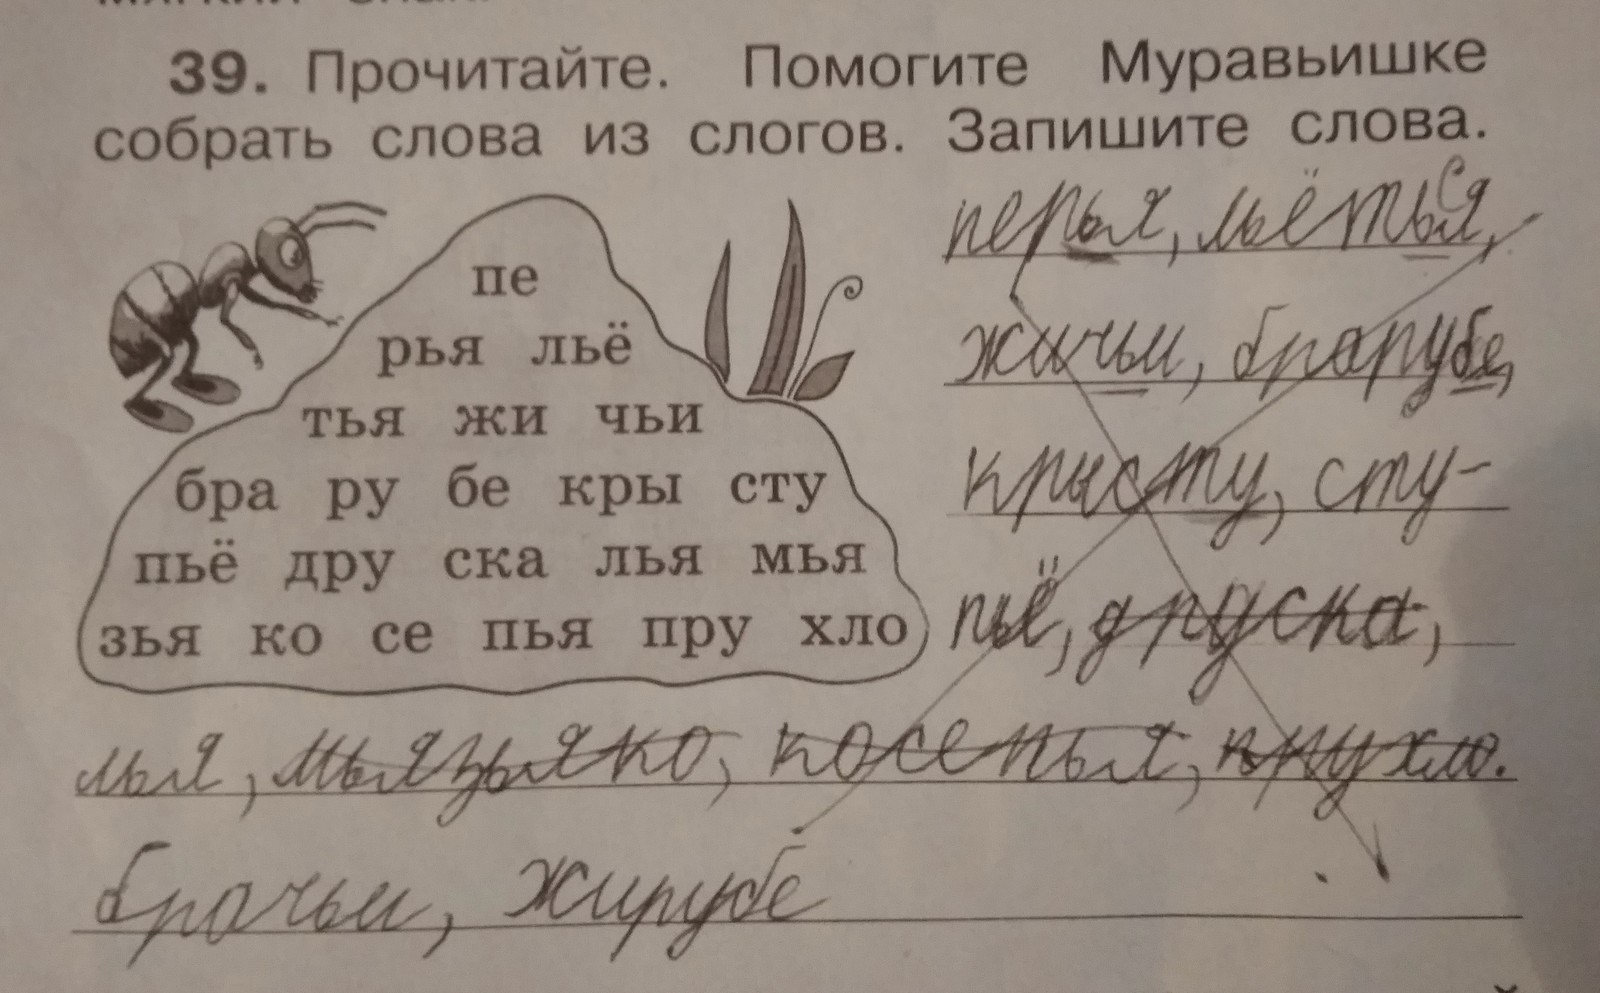 39. Прочитайте. Помогите Муравьишке
собрать слова из слогов. Запишите слова.
пе
рья льё
тья жи чьи
бра ру бе кры сту
пьё дру ска лья мья
зья ко се пья пру хло
перья, льёться,
жичьи, брарубе,
крысту, сту-
пьё, друска,
лья, мьязьяко, косепья, прухло.
брачьи, жирубе